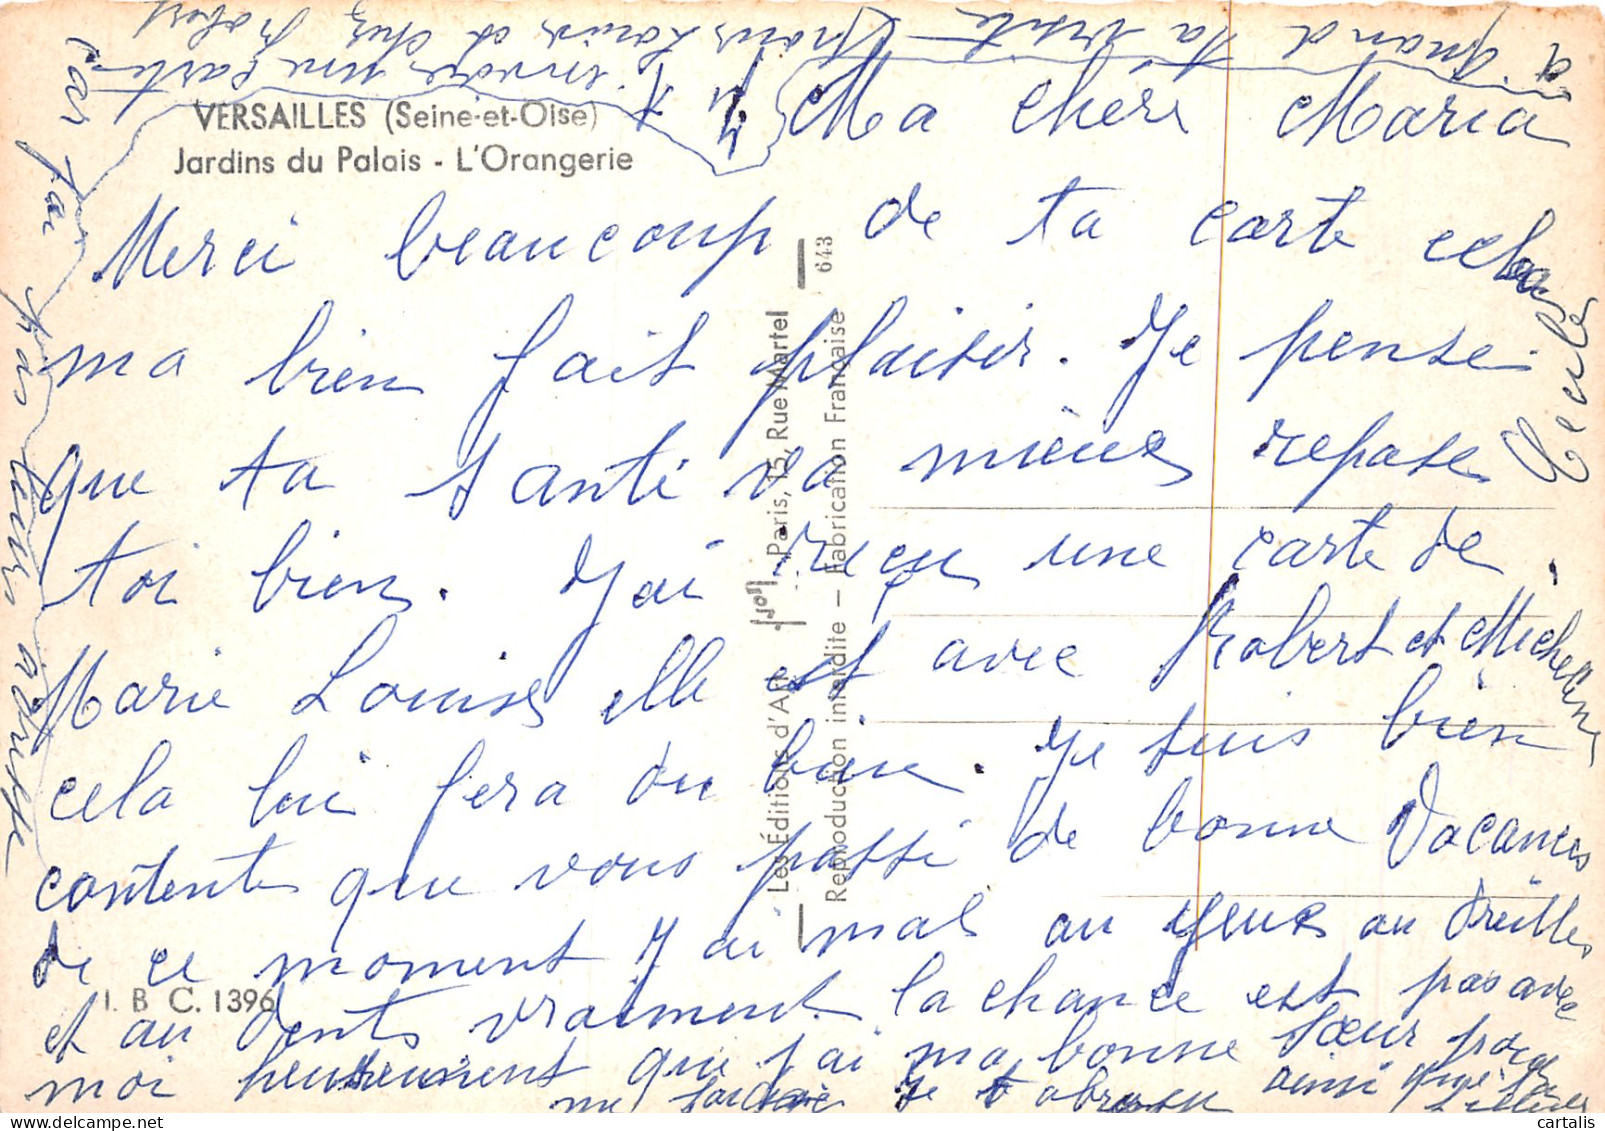 VERSAILLES (Seine-et-Oise)
Jardins du Palais - L'Orangerie
Ma chere Maria
Merci beaucoup de ta carte cela
ma bien fait plaisir. Je pense
que ta santé va mieux repose
toi bien. J'ai reçu une carte de
Marie Louise elle est avec Robert et Micheline
cela lui fera du bien. Je suis bien
contente que vous passé de bonne Vacances
de ce moment j'ai mal au yeux au oreilles
et au dents vraiment la chance est pas avec
moi heureusement que j'ai ma bonne sœur pour
me Je t'abrasse ainsi que
Seule
a quand ta visite
envoyer une carte
Marie Louise et chez Robert
car j'ai pas leur adresse
Les Éditions d'Art
Paris, 15, Rue Martel
Reproduction interdite — Fabrication Française
643
I. B C. 1396
cartalis
www.delcampe.net